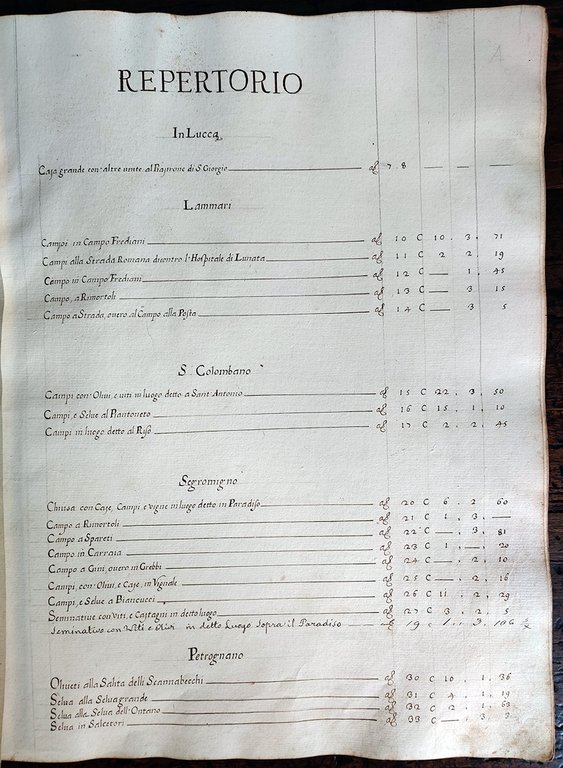 A
REPERTORIO
In Lucca
Casa grande con altre unite al Piastrone di S. Giorgio af 7. 8 — — —
Lammari
Campi in Campo Frediani af 10 C 10. 3. 71
Campi alla Strada Romana dicontro l'Hospitale di Lunata af 11 C 2 2. 19
Campo in Campo Frediani af 12 C — 1. 45
Campo, a Rimortoli af 13 C — 3 15
Campo a Strada, overo al Campo alla Posta af 14 C — 3 5
S. Colombano
Campi con Olivi, e viti in luogo detto a Sant'Antonio af 15 C 22. 3. 50
Campi, e Selve al Piantoneto af 16 C 15. 1. 10
Campi in luogo detto al Riso af 17 C 2. 2. 45
Segromigno
Chiusa con Case, Campi, e vigne in luogo detto in Paradiso af 20 C 6. 2 60
Campo a Rimortoli af 21 C 1. 3. —
Campo a Spareti af 22 C — . 3. 81
Campo in Carraia af 23 C 1. — . 20
Campo a Gini, overo in Grebbi af 24 C — . 2. 10
Campi, con Olivi, e Case, in Vignale af 25 C — . 2. 16
Campi, e Selve a Biancucci af 26 C 11. 2. 29
Seminative con viti, e Castagni in detto luogo af 27 C 3. 2. 5
Seminativo con Viti e Olivi in detto Luogo sopra il Paradiso 19 C 1. 3. 106
Petrognano
Oliveti alla Salita delli Scannabecchi af 30 C 10. 1. 36
Selva alla Selva grande af 31 C 4. 1. 19
Selva alla Selva dell'Ontano af 32 C 2. 1. 63
Selva in Salcetori af 33 C — . 3. 3